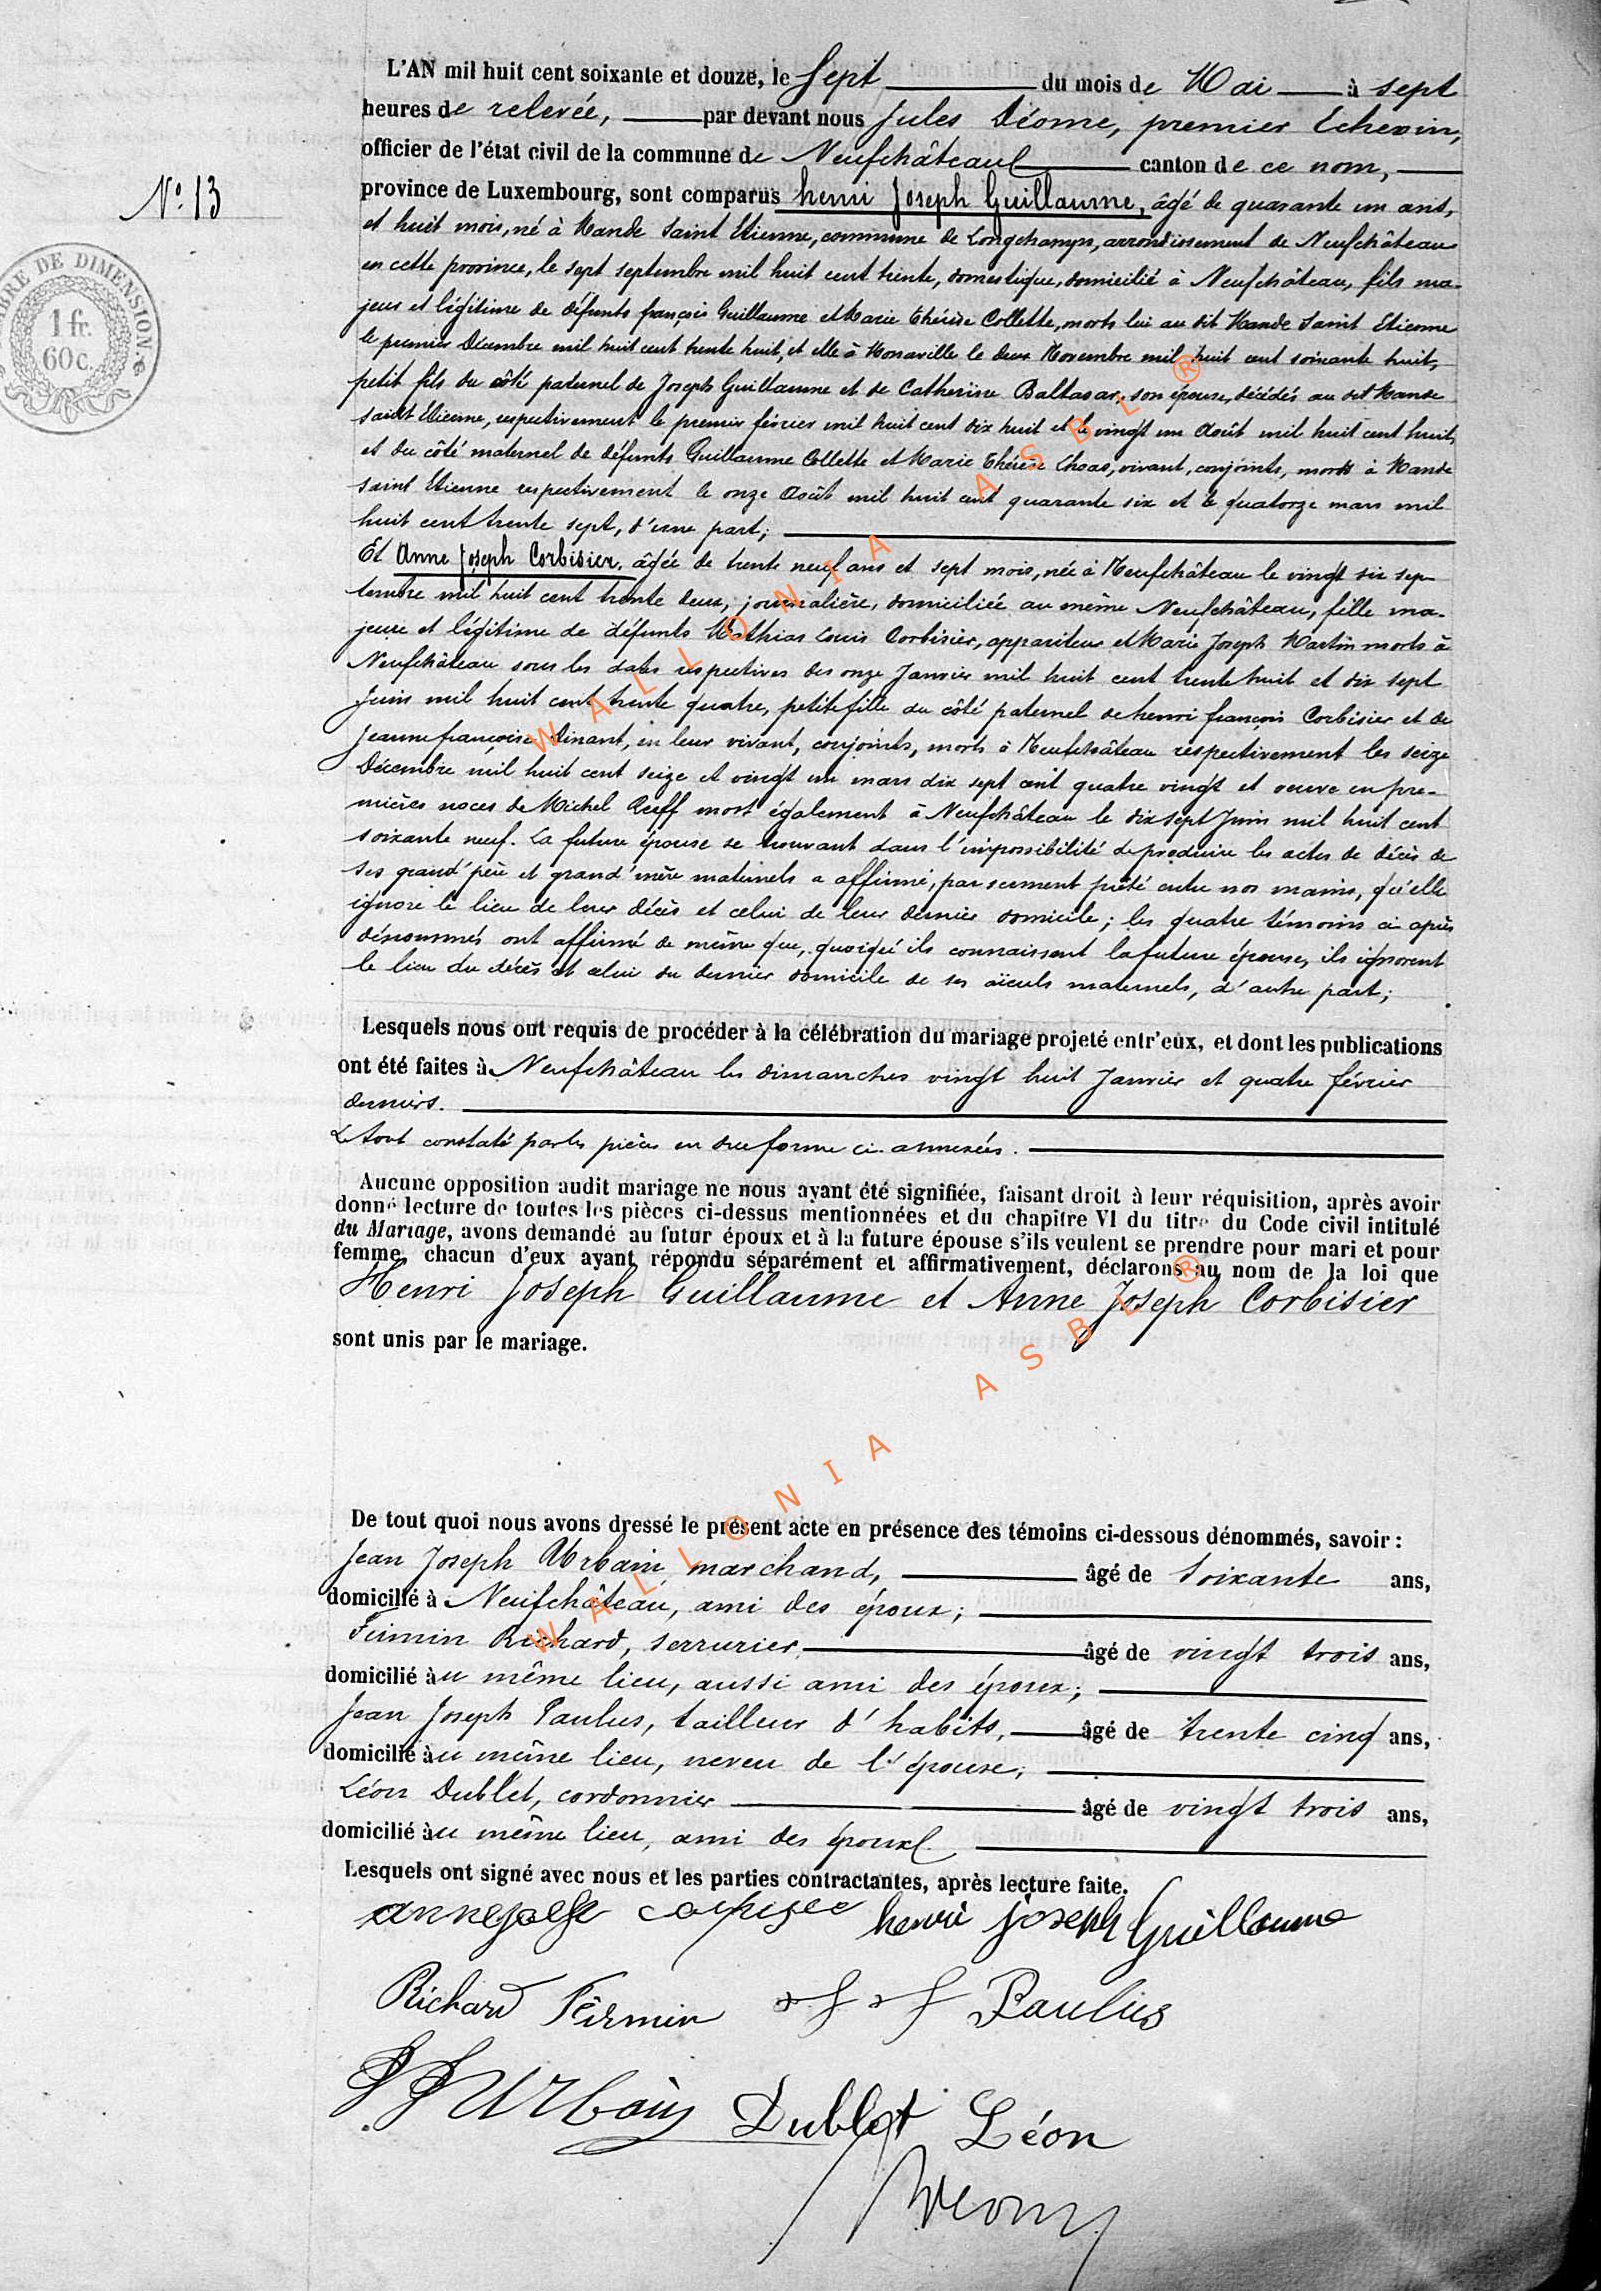 L'AN mil huit cent soixante et douze, le Sept du mois de Mai à sept
heures de relevée, par devant nous Jules Déome, premier Echevin,
officier de l'état civil de la commune de Neufchâteau canton de ce nom,
N° 13
province de Luxembourg, sont comparus henri Joseph Guillaume, âgé de quarante un ans,
et huit mois, né à Mande Saint Etienne, commune de Longchamps, arrondissement de Neufchâteau
TIMBRE DE DIMENSION.
1 fr.
60 c.
en cette province, le sept septembre mil huit cent trente, domestique, domicilié à Neufchâteau, fils ma-
jeur et légitime de défunts françois Guillaume et Marie Thérèse Collette, morts lui au dit Mande Saint Etienne
le premier Décembre mil huit cent trente huit, et elle à Monaville le deux Novembre mil huit cent soixante huit,
petit fils du côté paternel de Joseph Guillaume et de Catherine Baltasar, son épouse, décédés au dit Mande
saint Etienne, respectivement le premier février mil huit cent dix huit et le vingt un Août mil huit cent huit,
et du côté maternel de défunts Guillaume Collette et Marie Thérèse, vivant, conjoints, morts à Mande
saint Etienne respectivement le onze Août mil huit cent quarante six et le quatorze mars mil
huit cent trente sept, d'une part;
Et Anne Joseph Corbisier, âgée de trente neuf ans et sept mois, née à Neufchâteau le vingt six sep-
tembre mil huit cent trente deux, journalière, domiciliée au même Neufchâteau, fille ma-
jeure et légitime de défunts Mathias Louis Corbisier, appariteur et Marie Joseph Martin morts à
Neufchâteau sous les dates respectives des onze Janvier mil huit cent trente huit et dix sept
Juin mil huit cent trente quatre, petite fille du côté paternel de henri françois Corbisier et de
Jeanne françoise Dinant, en leur vivant, conjoints, morts à Neufchâteau respectivement les seize
Décembre mil huit cent seize et vingt un mars dix sept cent quatre vingt et veuve en pre-
mières noces de Michel mort également à Neufchâteau le dix sept Juin mil huit cent
soixante neuf. La future épouse se trouvant dans l'impossibilité de produire les actes de décès de
ses grand'père et grand'mère maternels a affirmé, par serment prêté entre nos mains, qu'elle
ignore le lieu de leur décès et celui de leur dernier domicile; les quatre témoins ci après
dénommés ont affirmé de même que, quoiqu'ils connaissent la future épouse, ils ignorent
le lieu du décès et celui du dernier domicile de ses aïeuls maternels, d'autre part;
Lesquels nous ont requis de procéder à la célébration du mariage projeté entr'eux, et dont les publications
ont été faites à Neufchâteau les dimanches vingt huit Janvier et quatre février
derniers.
Le tout constaté par les pièces en due forme ci-annexées.
Aucune opposition audit mariage ne nous ayant été signifiée, faisant droit à leur réquisition, après avoir
donné lecture de toutes les pièces ci-dessus mentionnées et du chapitre VI du titre du Code civil intitulé
du Mariage, avons demandé au futur époux et à la future épouse s'ils veulent se prendre pour mari et pour
femme, chacun d'eux ayant répondu séparément et affirmativement, déclarons au nom de la loi que
Henri Joseph Guillaume et Anne Joseph Corbisier
sont unis par le mariage.
De tout quoi nous avons dressé le présent acte en présence des témoins ci-dessous dénommés, savoir :
Jean Joseph Urbain, marchand, âgé de Soixante ans,
domicilié à Neufchâteau, ami des époux;
Firmin Richard, serrurier, âgé de vingt trois ans,
domicilié au même lieu, aussi ami des époux;
Jean Joseph Paulus, tailleur d'habits, âgé de trente cinq ans,
domicilié au même lieu, neveu de l'épouse;
Léon Dublet, cordonnier âgé de vingt trois ans,
domicilié au même lieu, ami des époux.
Lesquels ont signé avec nous et les parties contractantes, après lecture faite.
henri joseph Guillaume
Richard Firmin J J Paulus
J J Urbain Dublet Léon
Déome
WALLONIA ASBL ®
WALLONIA ASBL ®